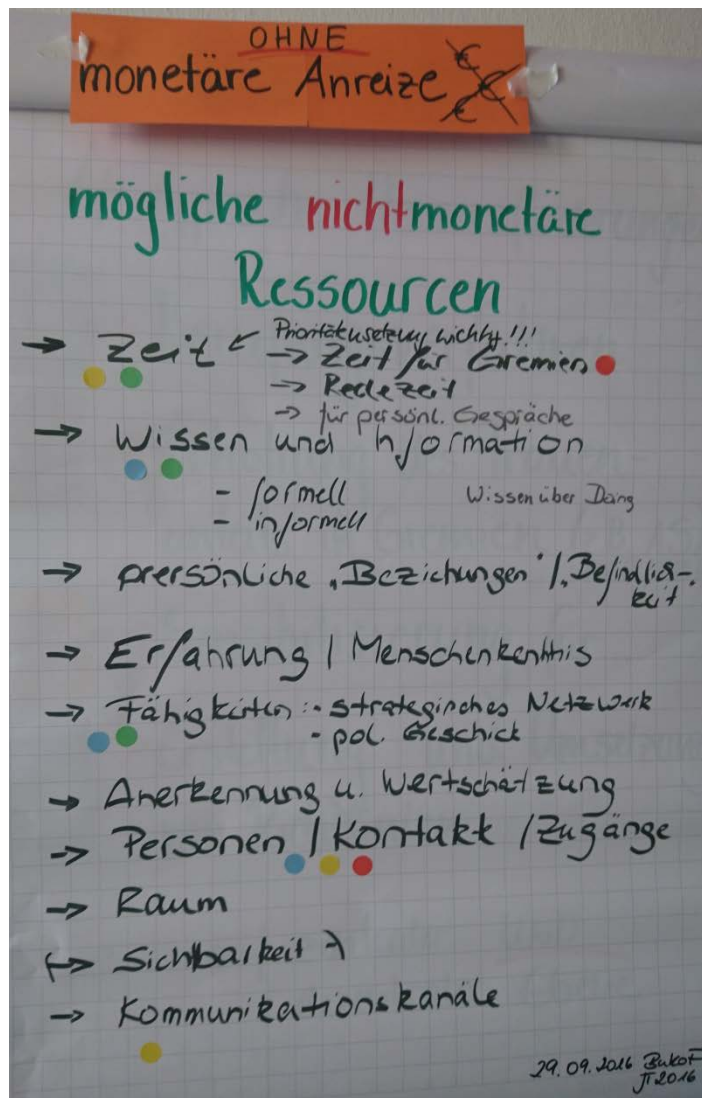 OHNE
monetäre Anreize € € €
mögliche nichtmonetäre
Ressourcen
→ Zeit ← Prioritätensetzung wichtig!!!
→ Zeit für Gremien
→ Redezeit
→ für persönl. Gespräche
→ Wissen und Information
- formell Wissen über Dang
- informell
→ prersönliche "Beziehungen" / "Befindlich-
keit
→ Erfahrung / Menschenkenntnis
→ Fähigkeiten: - strategisches Netzwerk
- pol. Geschick
→ Anerkennung u. Wertschätzung
→ Personen / Kontakt / Zugänge
→ Raum
→ Sichtbarkeit
→ Kommunikationskanäle
29.09.2016 BukoF
JT 2016